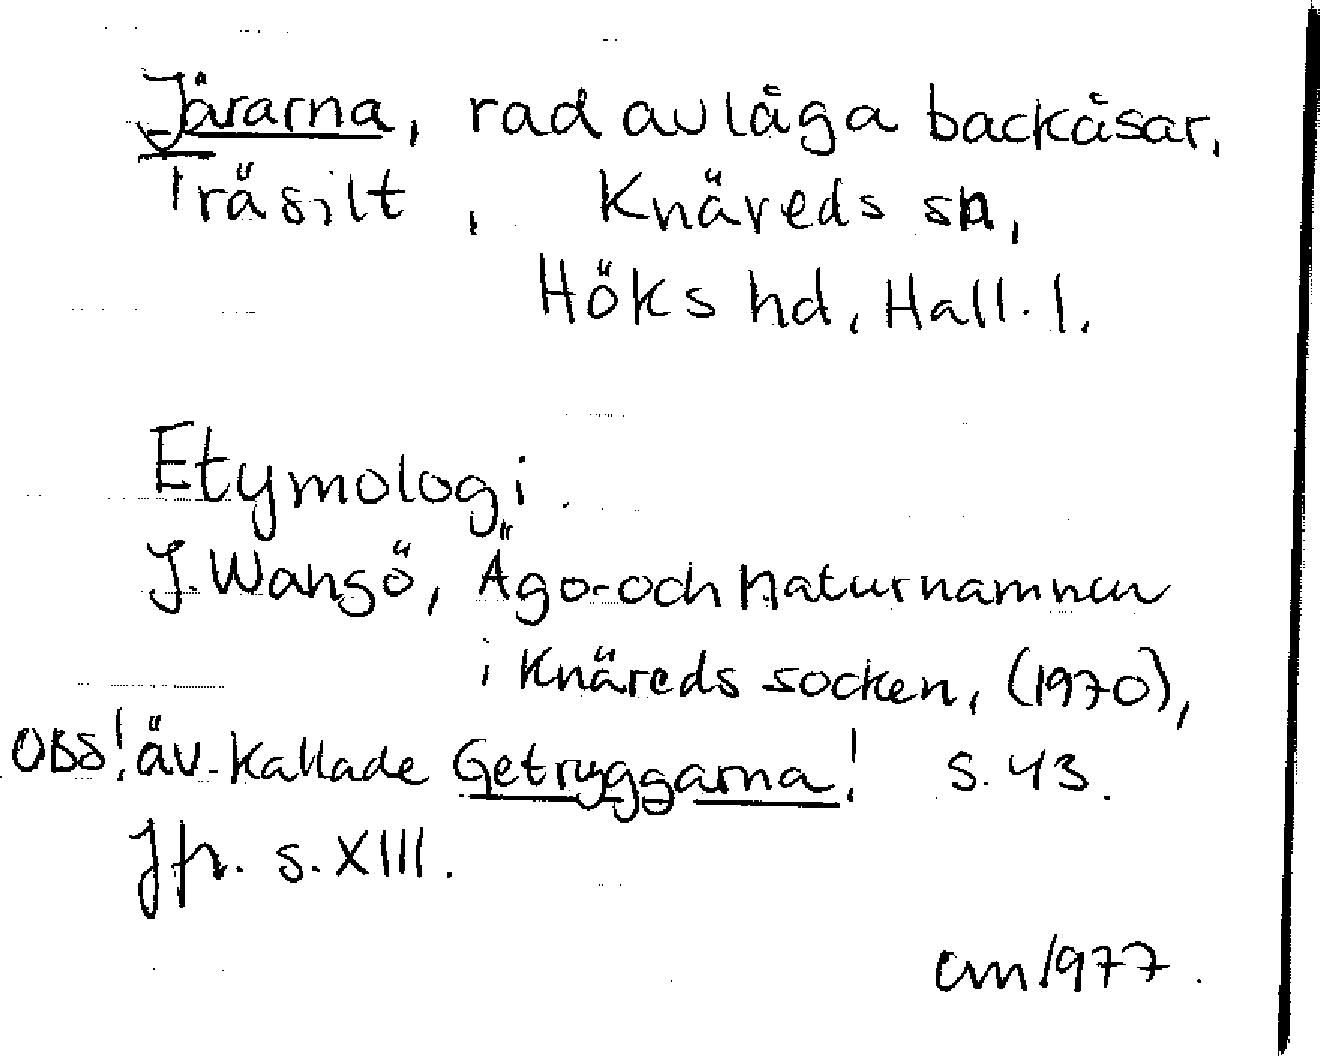 Jårarna, rad av låga backåsar,
Träsilt, Knäreds sn,
Höks hd, Hall. l.
Etymologi.
J. Wangö, Ägo- och naturnamnen
i Knäreds socken, (1970),
OBS! äv. kallade Getryggarna! s. 43.
Jfr. s. XIII.
cm 1977.